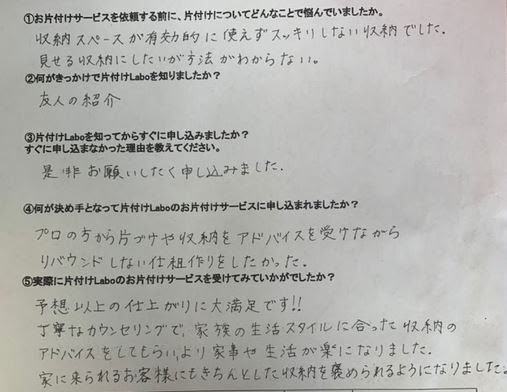 ①お片付けサービスを依頼する前に、片付けについてどんなことで悩んでいましたか。
収納スペースが有効的に使えずスッキリしない収納でした。
見せる収納にしたいが方法がわからない。
②何がきっかけで片付けLaboを知りましたか？
友人の紹介
③片付けLaboを知ってからすぐに申し込みましたか？
すぐに申し込まなかった理由を教えてください。
是非お願いしたく申し込みました。
④何が決め手となって片付けLaboのお片付けサービスに申し込まれましたか？
プロの方から片づけや収納をアドバイスを受けながら
リバウンドしない仕組作りをしたかった。
⑤実際に片付けLaboのお片付けサービスを受けてみていかがでしたか？
予想以上の仕上がりに大満足です!!
丁寧なカウンセリングで、家族の生活スタイルに合った収納の
アドバイスをしてもらい、より家事や生活が楽になりました。
家に来られるお客様にもきちんとした収納を褒められるようになりました。